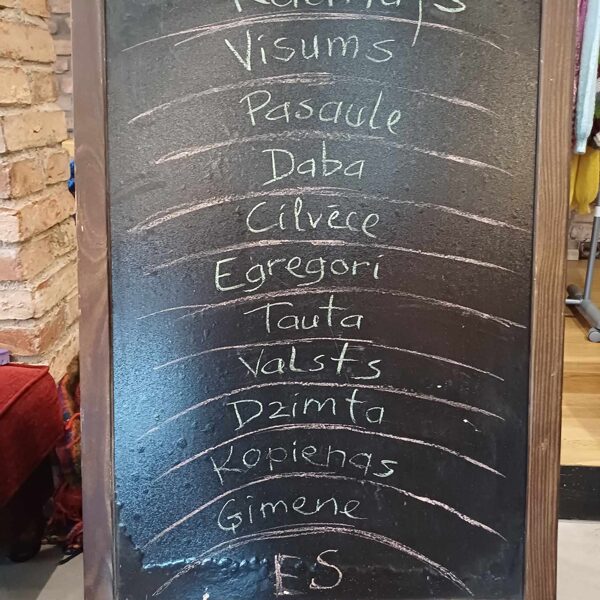 Visums
Pasaule
Daba
Cilvēce
Egregori
Tauta
Valsts
Dzimta
Kopienas
Ģimene
ES